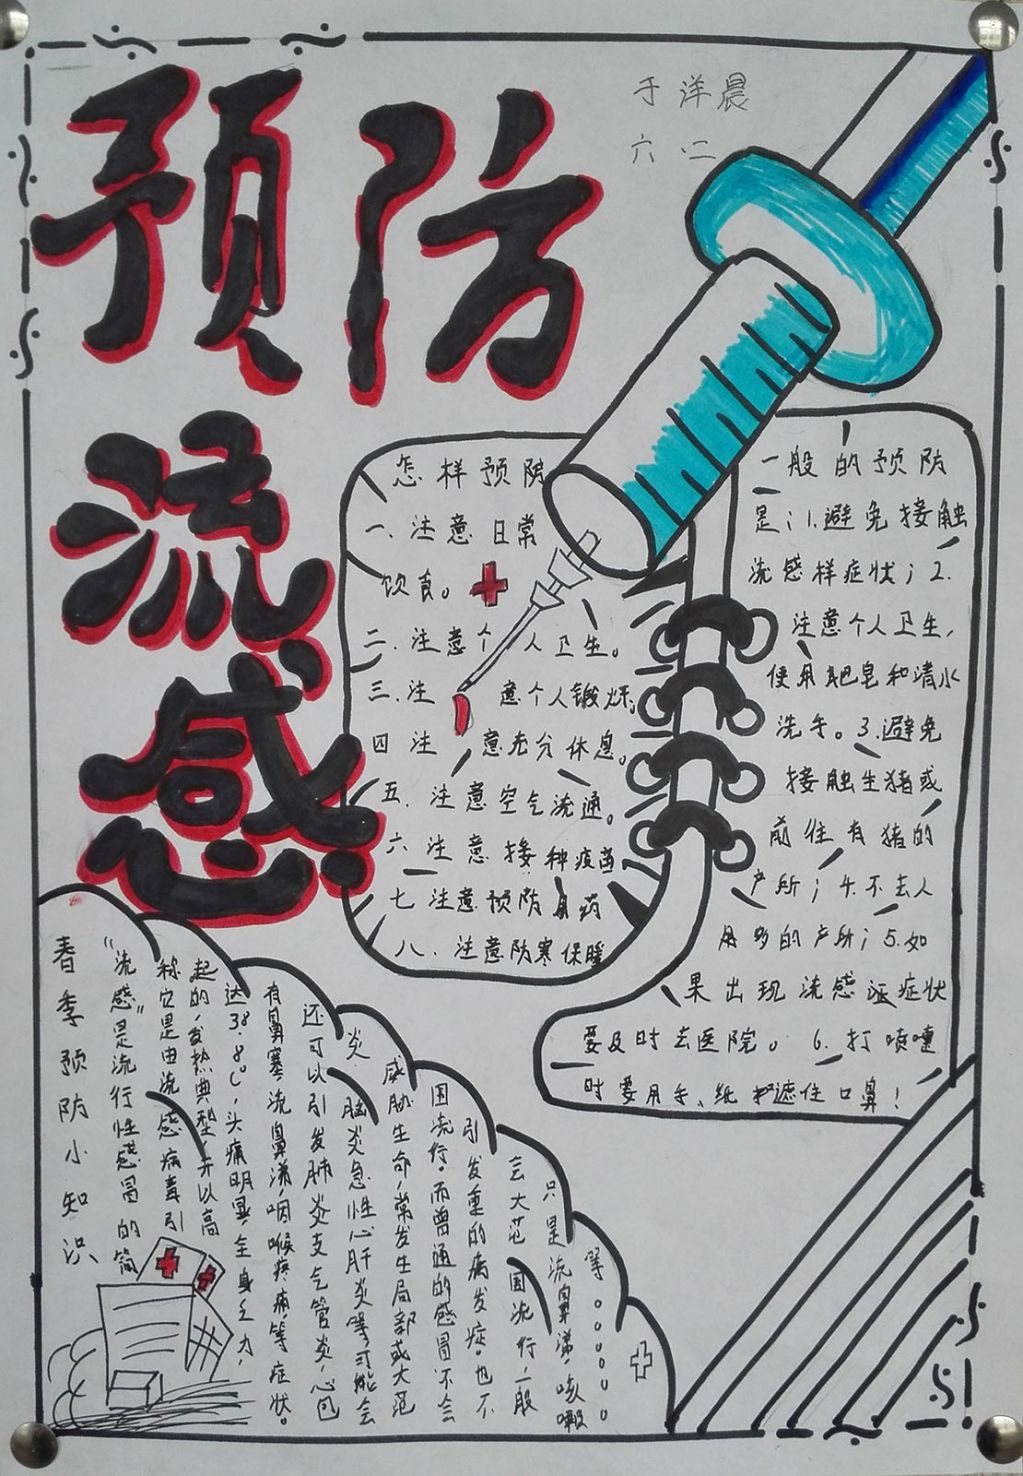 预防
流感
于洋晨
六.二
怎样预防
一.注意日常
饮食。
二.注意个人卫生。
三.注意个人锻炼。
四 注意充分休息。
五.注意空气流通。
六 注意接种疫苗
七 注意预防用药
八.注意防寒保暖
一般的预防
是:1.避免接触
流感样症状;2.
注意个人卫生,
使用肥皂和清水
洗手。3.避免
接触生猪或
前往有猪的
产所;4.不去人
用多的产所;5.如
果出现流感证症状
要及时去医院。6.打喷嚏
时要用手、纸护遮住口鼻!
春季预防小知识、
"流感"是流行性感冒的简
称它是由流感病毒引
起的,发热典型并以高
达38.8℃,头痛明显,全身乏力,
有鼻塞,流鼻涕,咽喉疼痛,等症状。
还可以引发肺炎支气管炎,心包
炎,脑炎急性心肝炎等,可能会
威胁生命,常发生局部或大范
围流行。而普通的感冒不会
引发重的病发症。也不
会大范围流行,一般
只是流鼻涕,咳嗽
等。。。。。。